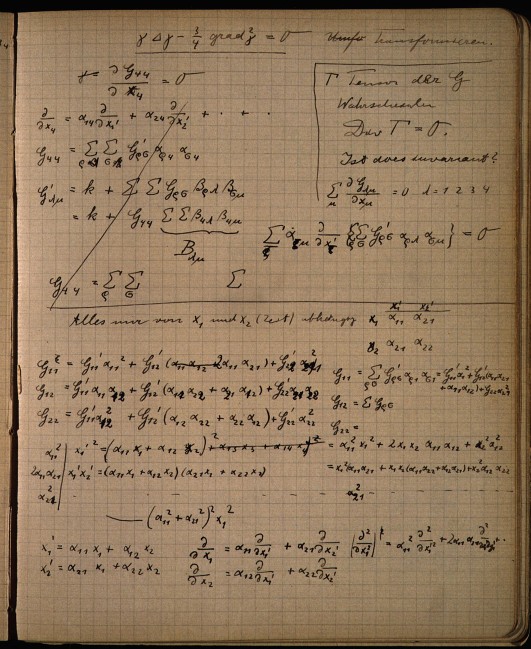 γ Δγ − 3/4 grad² γ = 0 transformieren.
γ = ∂G44/∂x4 = 0
∂/∂x4 = α14 ∂/∂x1' + α24 ∂/∂x2' + · + ·
G44 = Σρ Σσ G'ρσ αρ4 ασ4
G'λμ = k + Σ Σ Gρσ βρλ βσμ
= k + G44 Σ Σ β4λ β4μ
Bλμ
G44 = Σρ Σσ Σ
Γ Tensor der G
Wahrscheinlich
Div Γ = 0.
Ist dies invariant?
Σμ ∂Gλμ/∂xμ = 0 λ = 1 2 3 4
Σ αρμ ∂/∂x'ρ {ΣΣ G'ρσ αρλ ασμ} = 0
Alles nur von x1 und x2 (Zeit) abhängig
x1' x2'
x1 α11 α21
x2 α21 α22
G11 = G'11 α11² + G'12 2α11 α21) + G'22 α21²
G12 = G'11 α11 α12 + G'12 (α11 α22 + α21 α12) + G'22 α21 α22
G22 = G'11 α12² + G'12 (α12 α22 + α22 α12) + G'22 α22²
G11 = Σρσ G'ρσ αρ1 ασ1 = G'11 α11² + G'12 α11 α21
+ α11 α21) + G22 α21²
G12 = Σ Gρσ
G22 =
α11² | x1'² = (α11 x1 + α12 x2)² = α11² x1² + 2x1 x2 α11 α12 + x2² α12²
2α11 α21 | x1' x2' = (α11 x1 + α12 x2)(α21 x1 + α22 x2) = x1² α11 α21 + x1 x2 (α11 α22 + α12 α21) + x2² α12 α22
α21² α21²
(α11² + α21²)² x1²
x1' = α11 x1 + α12 x2 ∂/∂x1 = α11 ∂/∂x1' + α21 ∂/∂x2' ∂²/∂x1² = α11² ∂²/∂x1'² + 2α11 α21
x2' = α21 x1 + α22 x2 ∂/∂x2 = α12 ∂/∂x1' + α22 ∂/∂x2'